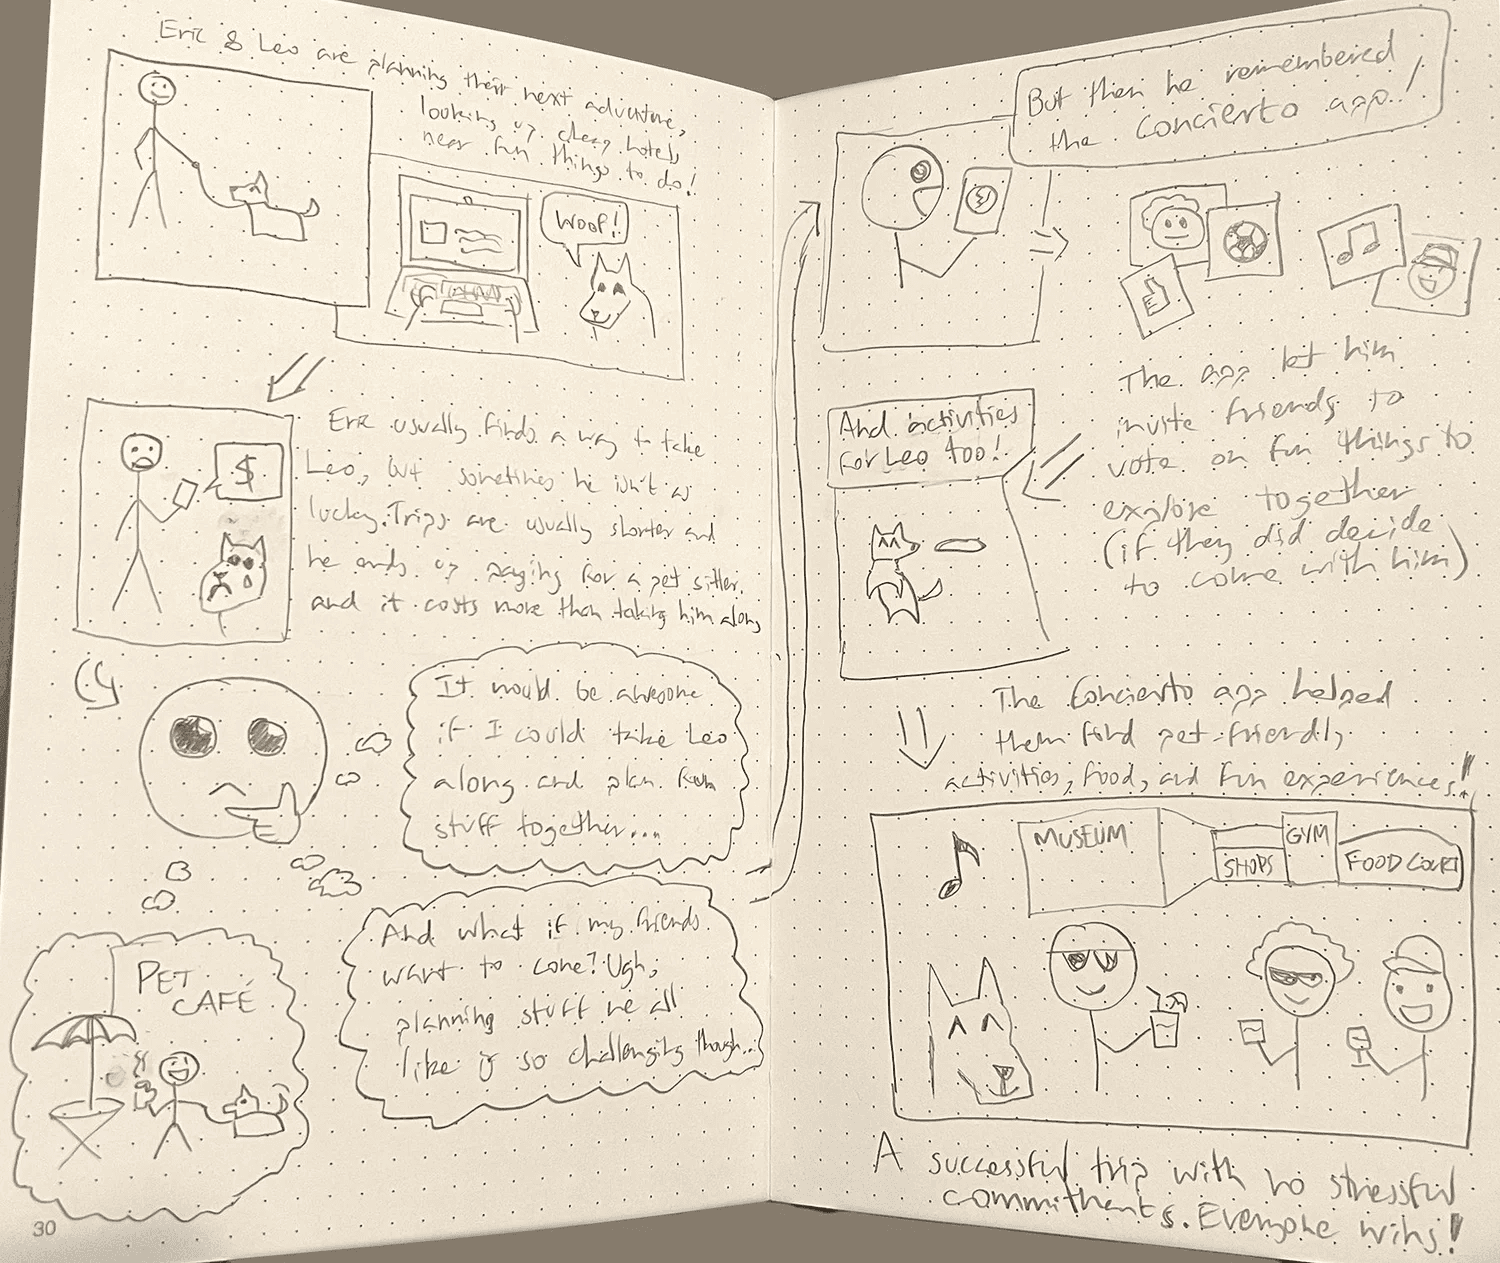 Eric & Leo are planning their next adventure,
looking up cheap hotels
near fun things to do!
Woof!
$
Eric usually finds a way to take
Leo, but sometimes he isn't as
lucky. Trips are usually shorter and
he ends up paying for a pet sitter,
and it costs more than taking him along
It would be awesome
if I could take Leo
along and plan fun
stuff together...
And what if my friends
want to come? Ugh,
planning stuff we all
like is so challenging though...
PET
CAFÉ
30
But then he remembered
the Concierto app!
The app let him
invite friends to
vote on fun things to
explore together
(if they did decide
to come with him)
And activities
for Leo too!
The Concierto app helped
them find pet-friendly
activities, food, and fun experiences!
MUSEUM
SHOPS
GYM
FOOD COURT
A successful trip with no stressful
commitments. Everyone wins!